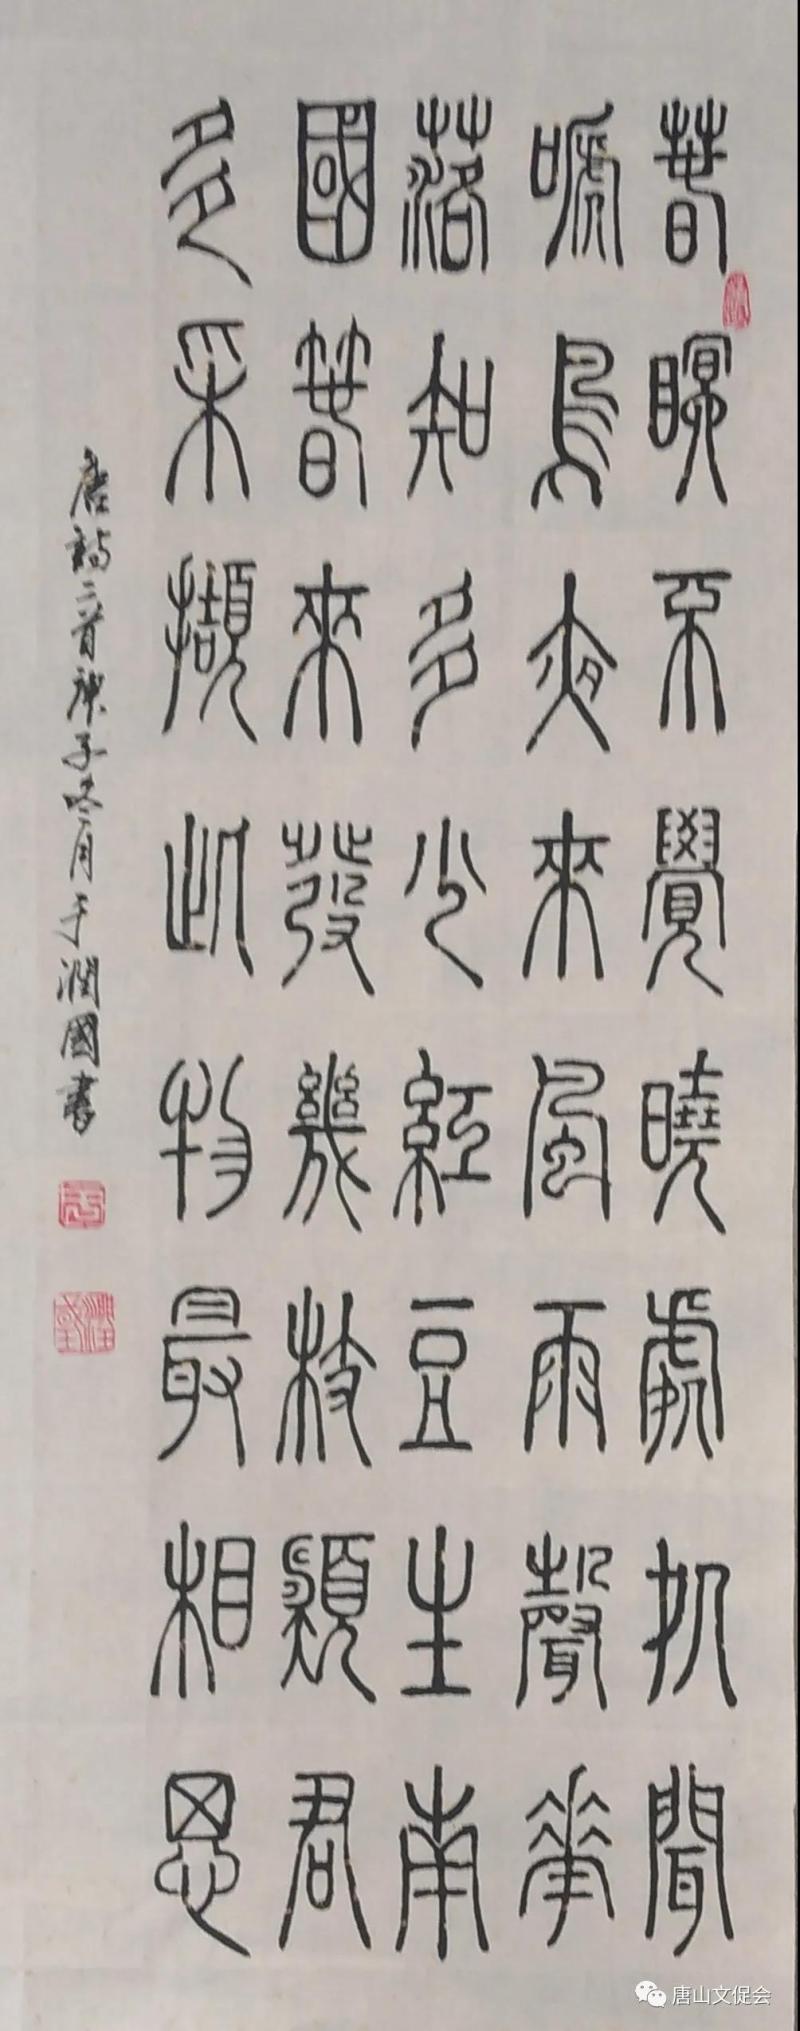 春瞑不覺曉處処聞
嗁鳥夜來風雨聲花
落知多少紅豆生南
國春來發幾枝願君
多采擷此物最相思
唐詩二首庚子冬月于潤國書
唐山文促会